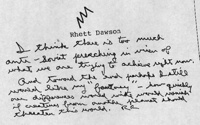 Rhett Dawson
I think there is too much
anti-Soviet preaching in view of
what we are trying to achieve right now.
And toward the end perhaps I still
would like my "fantasy" — how quickly
our differences worldwide would vanish
if creatures from another planet should
threaten this world.